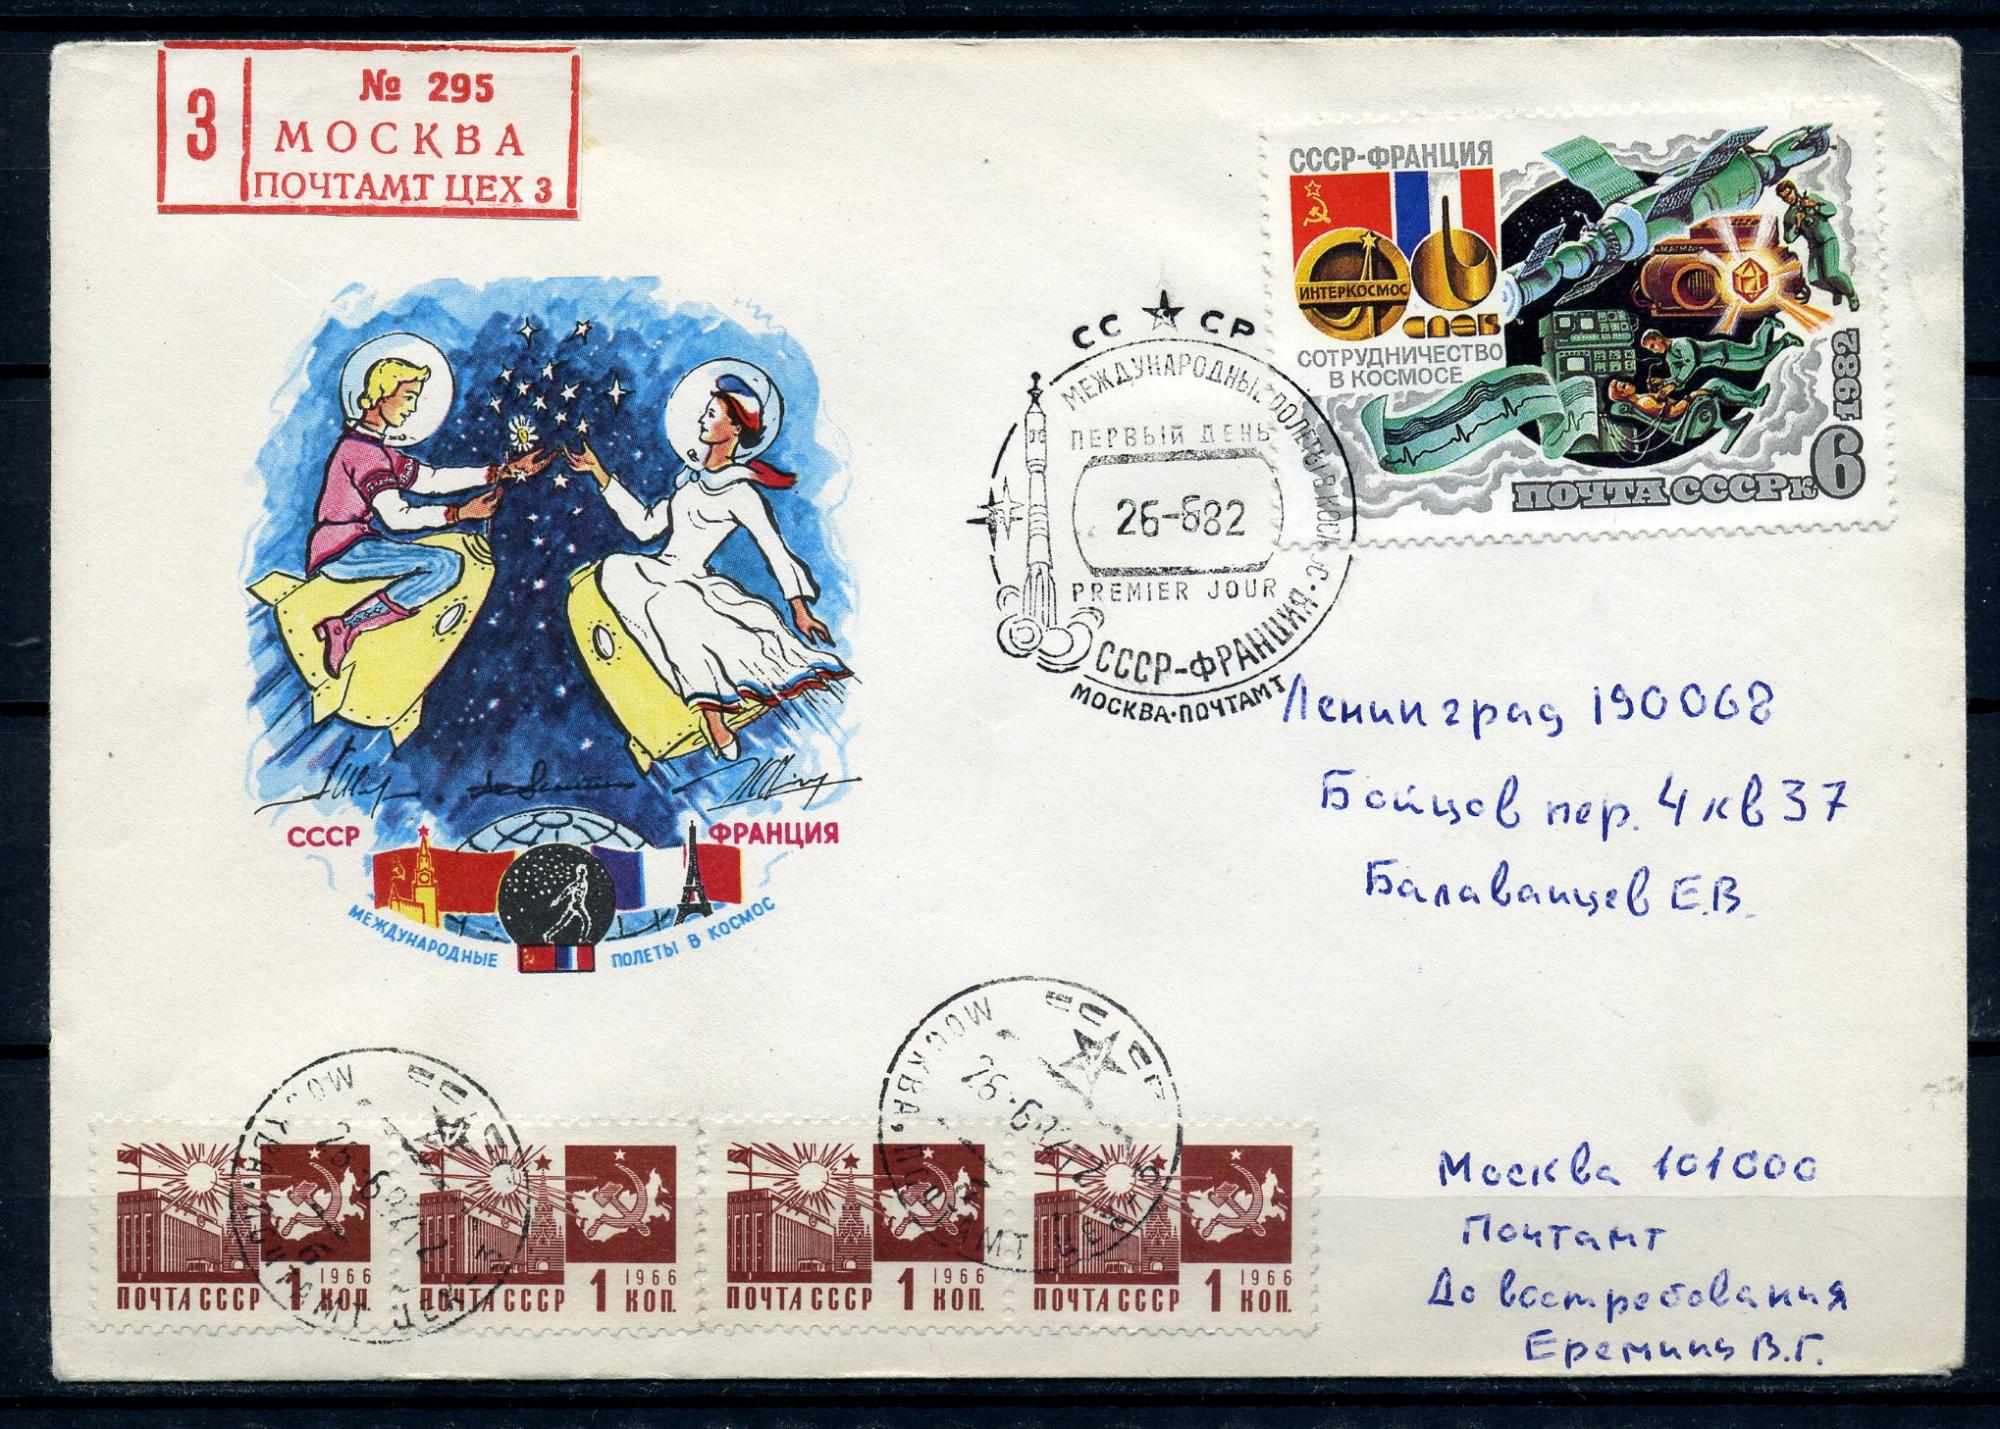 3
№ 295
МОСКВА
ПОЧТАМТ ЦЕХ 3
СССР-ФРАНЦИЯ
ИНТЕРКОСМОС
СОТРУДНИЧЕСТВО
В КОСМОСЕ
МАГМА
1982
ПОЧТА СССР к 6
СССР
МЕЖДУНАРОДНЫЕ ПОЛЕТЫ В КОСМОС
ПЕРВЫЙ ДЕНЬ
26-682
PREMIER JOUR
СССР-ФРАНЦИЯ
МОСКВА·ПОЧТАМТ
Ленинград 190068
Бойцов пер. 4 кв 37
Балаванцев Е.В.
СССР
ФРАНЦИЯ
МЕЖДУНАРОДНЫЕ ПОЛЕТЫ В КОСМОС
СССР
МОСКВА
СССР
МОСКВА
1966
ПОЧТА СССР 1 КОП.
1966
ПОЧТА СССР 1 КОП.
1966
ПОЧТА СССР 1 КОП.
1966
ПОЧТА СССР 1 КОП.
Москва 101000
Почтамт
До востребования
Еремины В.Г.